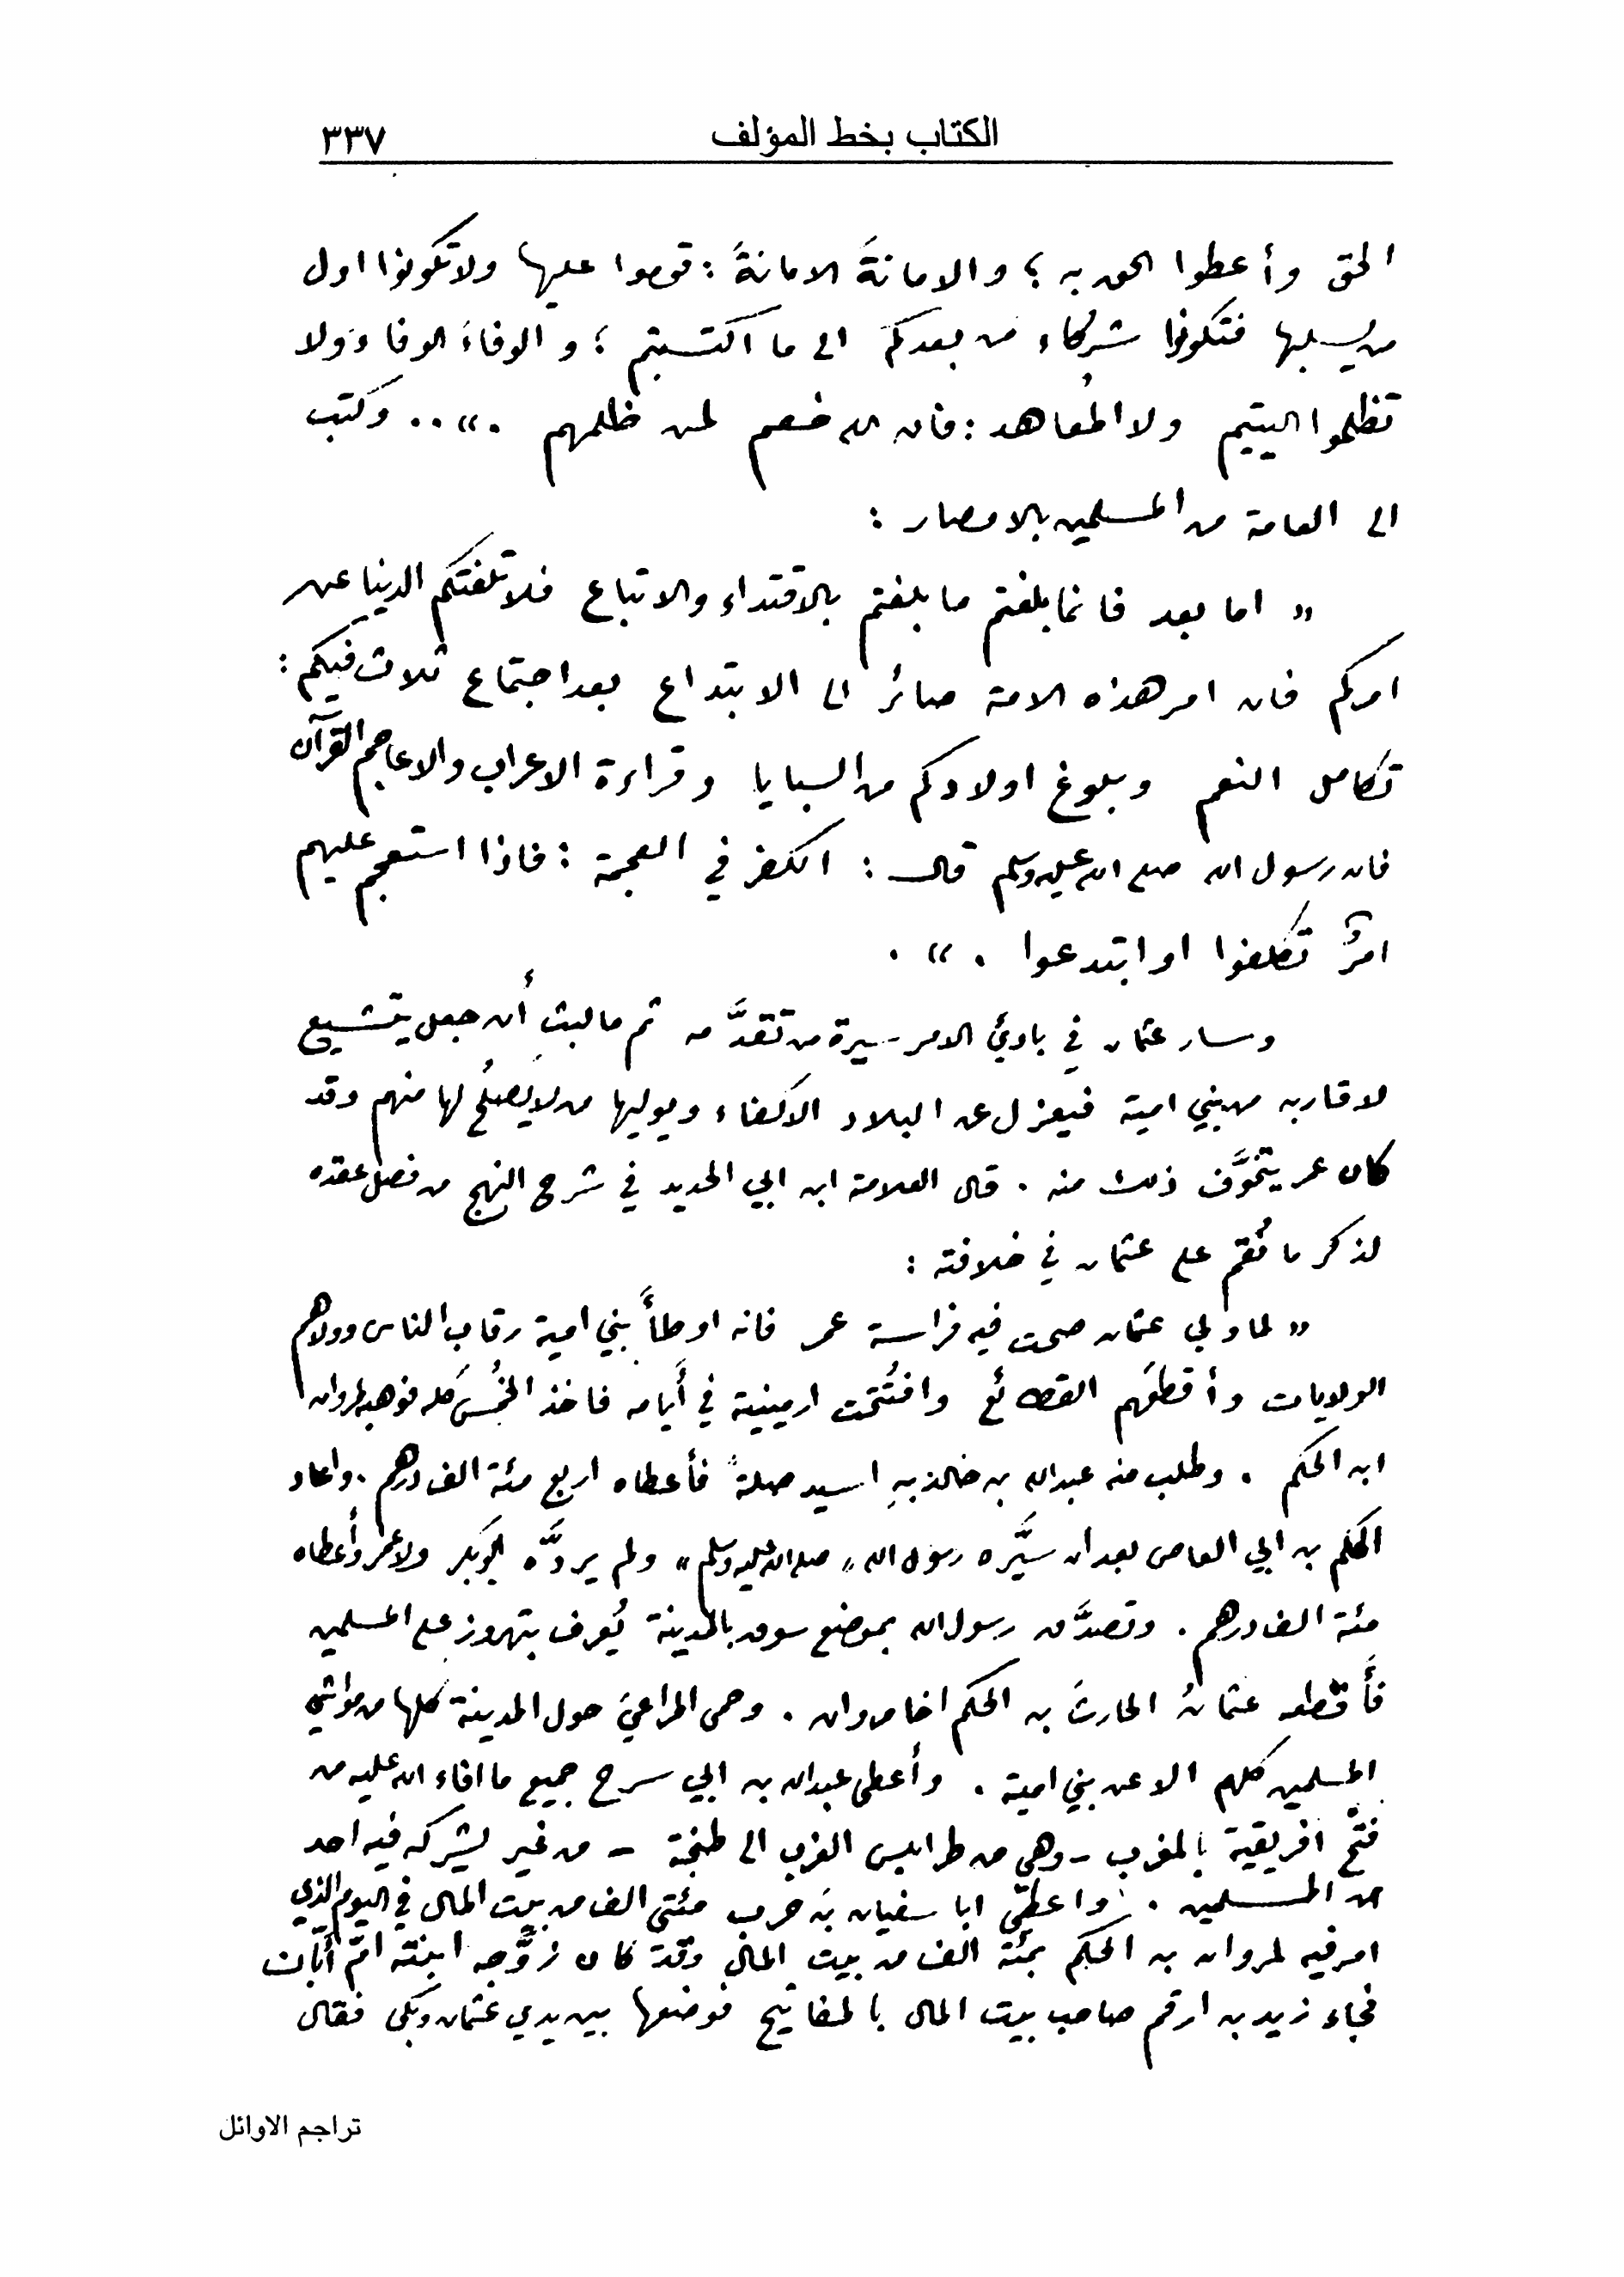 الكتاب بخط المؤلف ٣٣٧
الحق وأعطوا الحق به ؛ والامانةَ الامانةَ : قوموا عليها ولا تكونوا اول
من يسلبها فتكونوا شركاء من بعدكم الى ما اكتسبتم ؛ والوفاءَ الوفاءَ ولا
تظلموا اليتيم ولا المُعاهد : فان الله خصم لمن ظلمهم . » . . وكتب
الى العامة من المسلمين بالامصار :
« اما بعد فانما بلغتم ما بلغتم بالاقتداء والاتباع فلا تلفتكم الدنيا عن
امركم فان امر هذه الامة صائر الى الابتداع بعد اجتماع ثلاث فيكم :
تكامل النعم وبلوغ اولادكم من السبايا وقراءة الاعراب والاعاجم القرآن
فان رسول الله صلى الله عليه وسلم قال : الكفر في العجمة : فاذا استعجم عليهم
امرٌ تكلفوا او ابتدعوا . » .
وسار عثمان في بادئ الامر سيرة من تقدَّمه ثم ما لبث أن جعل يتشيع
لاقاربه من بني امية فيعزل عن البلاد الاكفاء ويوليها من لا يَصلُح لها منهم وقد
كان عمر يتخوَّف ذلك منه . قال العلامة ابن ابي الحديد في شرح النهج من فصل عقده
لذكر ما نُقم على عثمان في خلافته :
« لما ولي عثمان صحت فيه فراسة عمر فانه اوطأَ بني امية رقاب الناس وولاهم
الولايات وأقطعَهم القطائع وافتُتحت ارمينية في أيامه فاخذ الخُمُس كله فوهبه لمروان
ابن الحكم . وطلب منه عبدالله بن خالد بن اسيد صلةً فأعطاه اربع مئة الف درهم . واعاد
الحكم بن ابي العاص بعد ان سيَّره رسول الله « صلى الله عليه وسلم » ولم يردَّه ابوبكر ولا عمر وأعطاه
مئة الف درهم . وتصدَّق رسول الله بموضع سوق بالمدينة يُعرف بتهروز على المسلمين
فأَقطعه عثمانُ الحارثَ بن الحكم اخا مروان . وحمى المراعيَ حول المدينة كلها من مواشي
المسلمين كلهم الا عن بني امية . وأعطى عبدالله بن ابي سرح جميع ما افاء الله عليه من
فتح افريقية بالمغرب - وهي من طرابلس الغرب الى طنجة - من غير يشركه فيه احد
من المسلمين . واعطى ابا سفيان بن حرب مئتي الف من بيت المال في اليوم الذي
امر فيه لمروان بن الحكم بمئة الف من بيت المال وقد كان زوَّجه ابنته امّ أبان
فجاء زيد بن ارقم صاحب بيت المال بالمفاتيح فوضعها بين يدي عثمان وبكى فقال
تراجم الاوائل